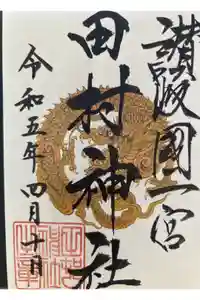 讃岐國一宮
田村神社
令和五年四月十日